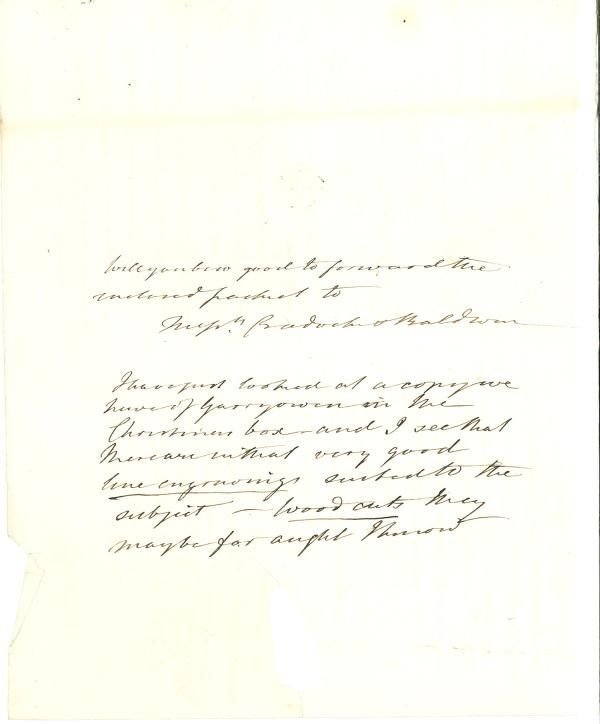 Will you be so good to forward the
enclosed packet to
Messrs. Cradock & Baldwin
I have just looked at a copy we
have of Garryowen in the
Christmas box – and I see that
there are in that very good
line engravings suited to the
subject – Wood cuts they
may be for aught I know